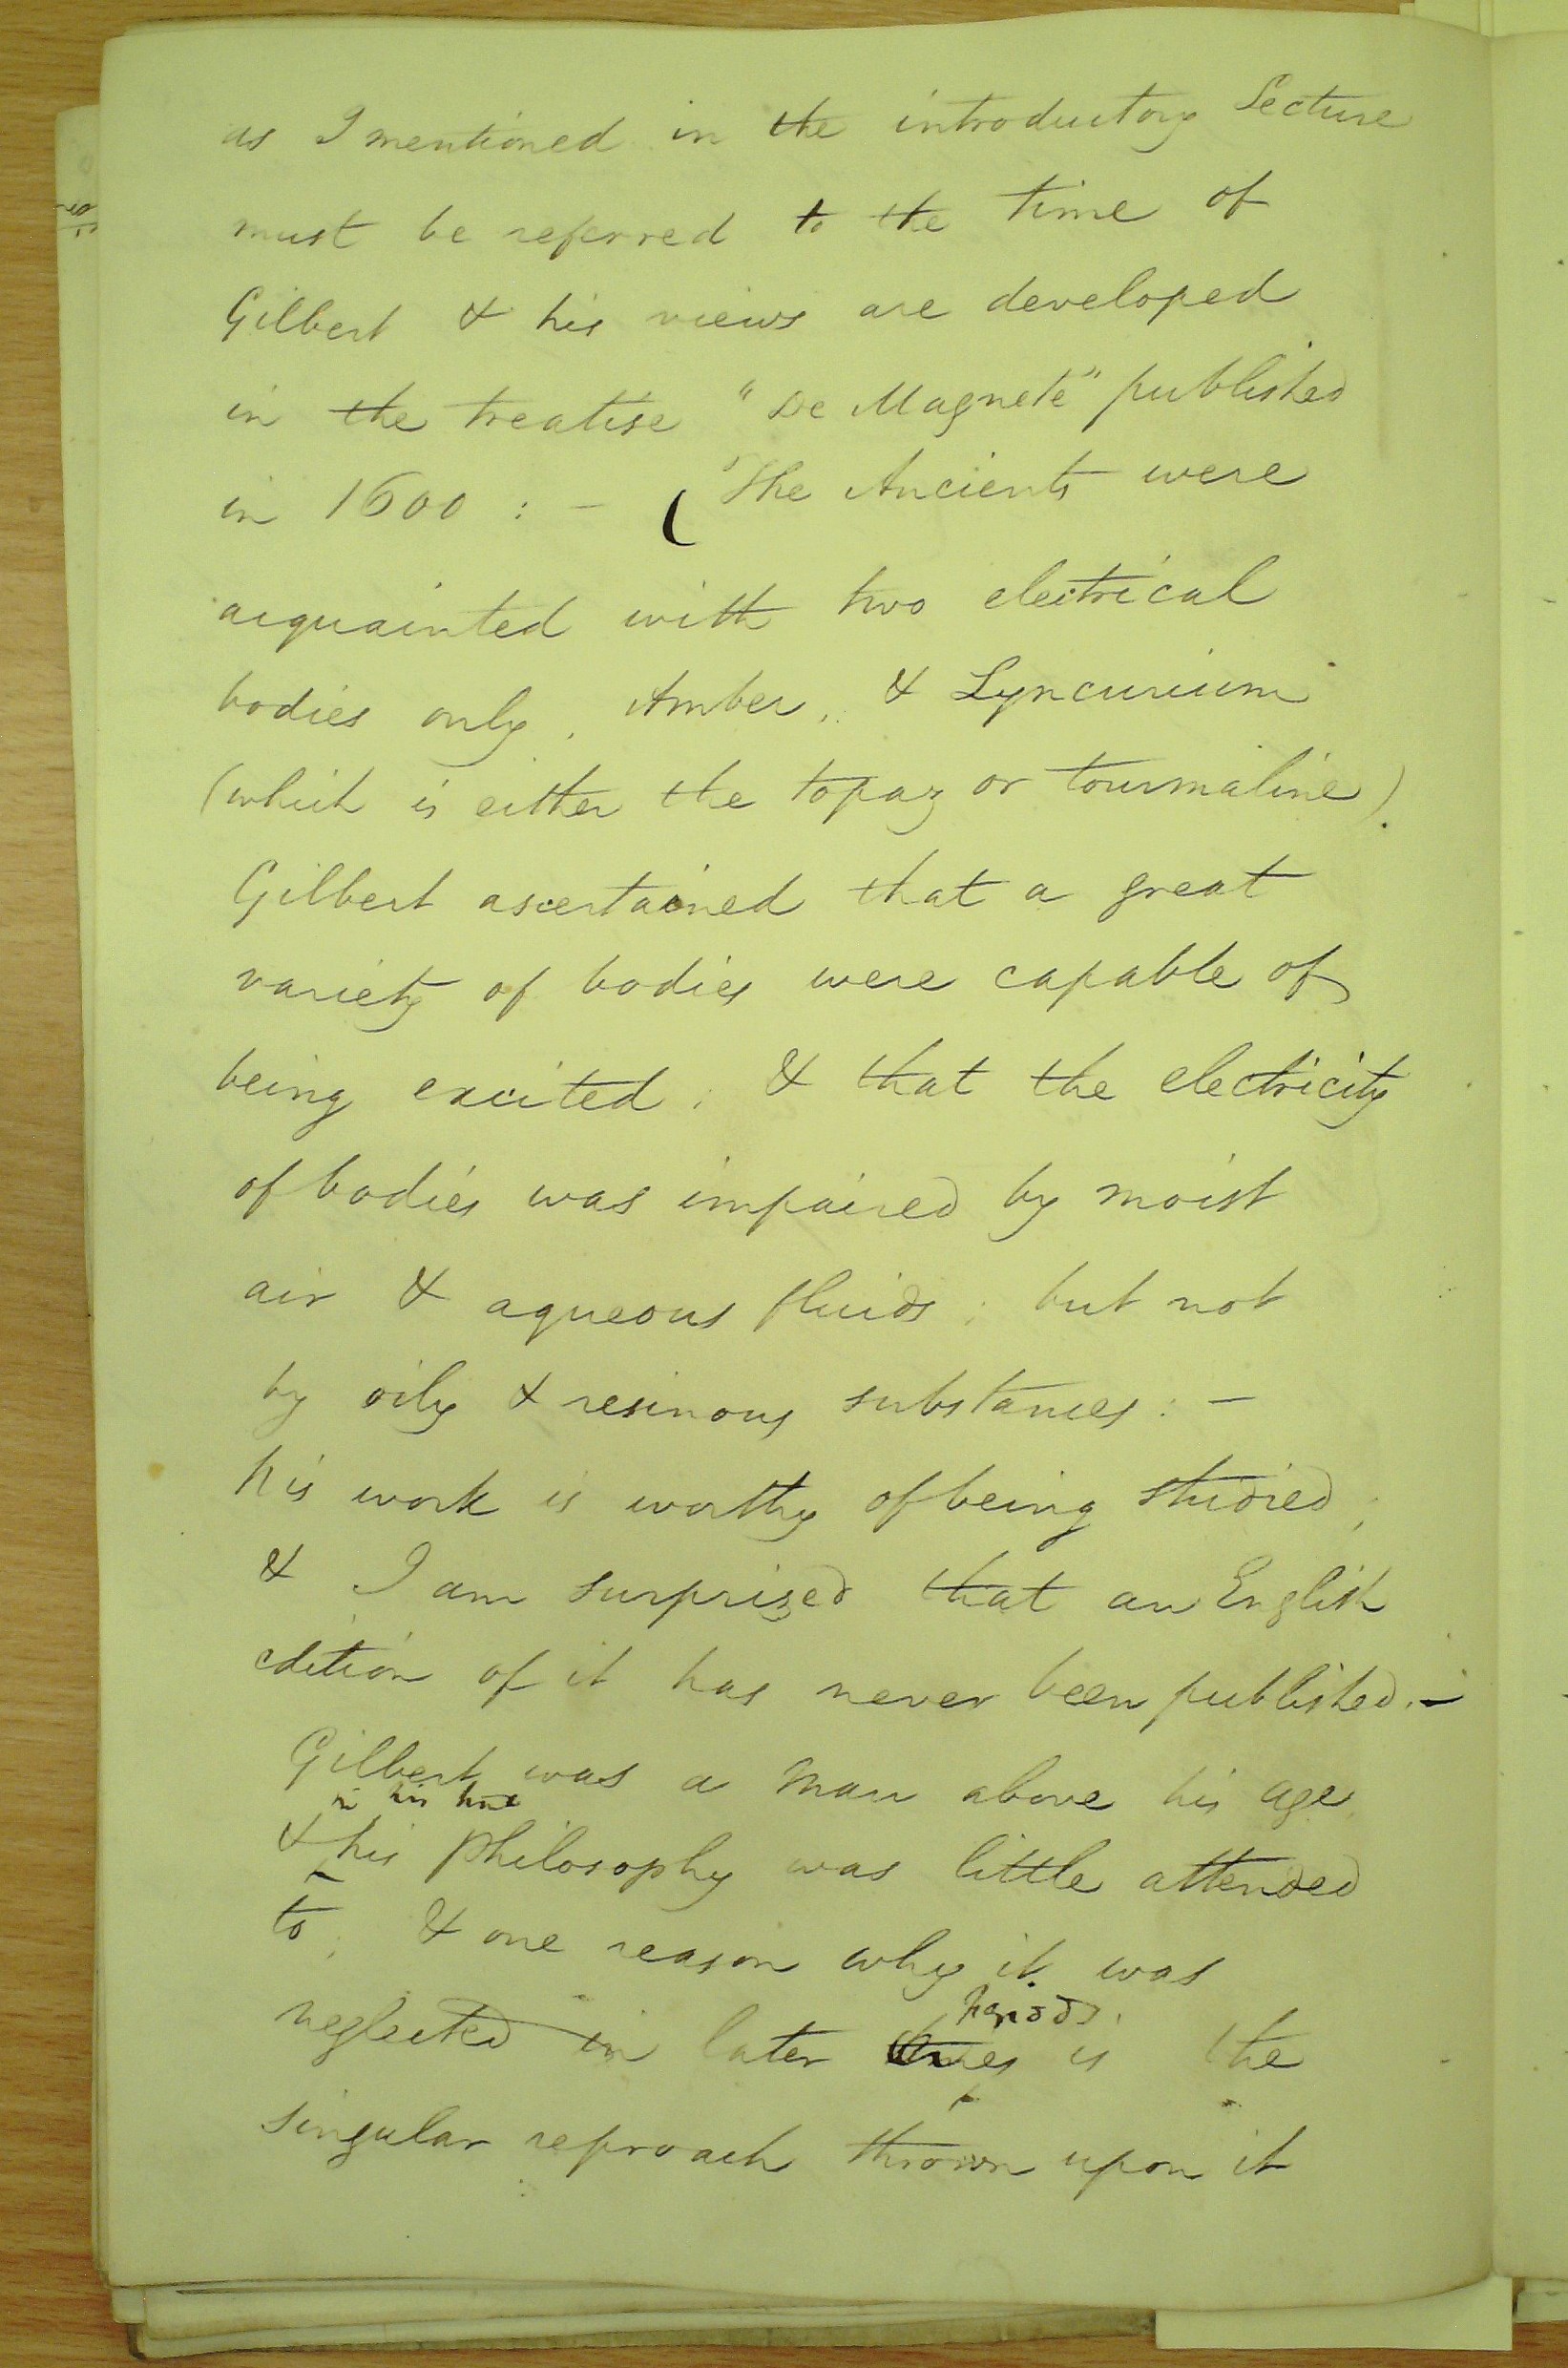 as I mentioned in the introductory Lecture
must be referred to the time of
Gilbert & his views are developed
in the treatise "De Magnete" published
in 1600 : - ( The Ancients were
acquainted with two electrical
bodies only, Amber, & Lyncurium
(which is either the topaz or tourmaline).
Gilbert ascertained that a great
variety of bodies were capable of
being excited; & that the electricity
of bodies was impaired by moist
air & aqueous fluids; but not
by oily & resinous substances: -
his work is worthy of being studied;
& I am surprized that an English
edition of it has never been published. -
Gilbert was a man above his age
in his time
& his philosophy was little attended
to; & one reason why it was
periods
neglected in later times is the
singular reproach thrown upon it